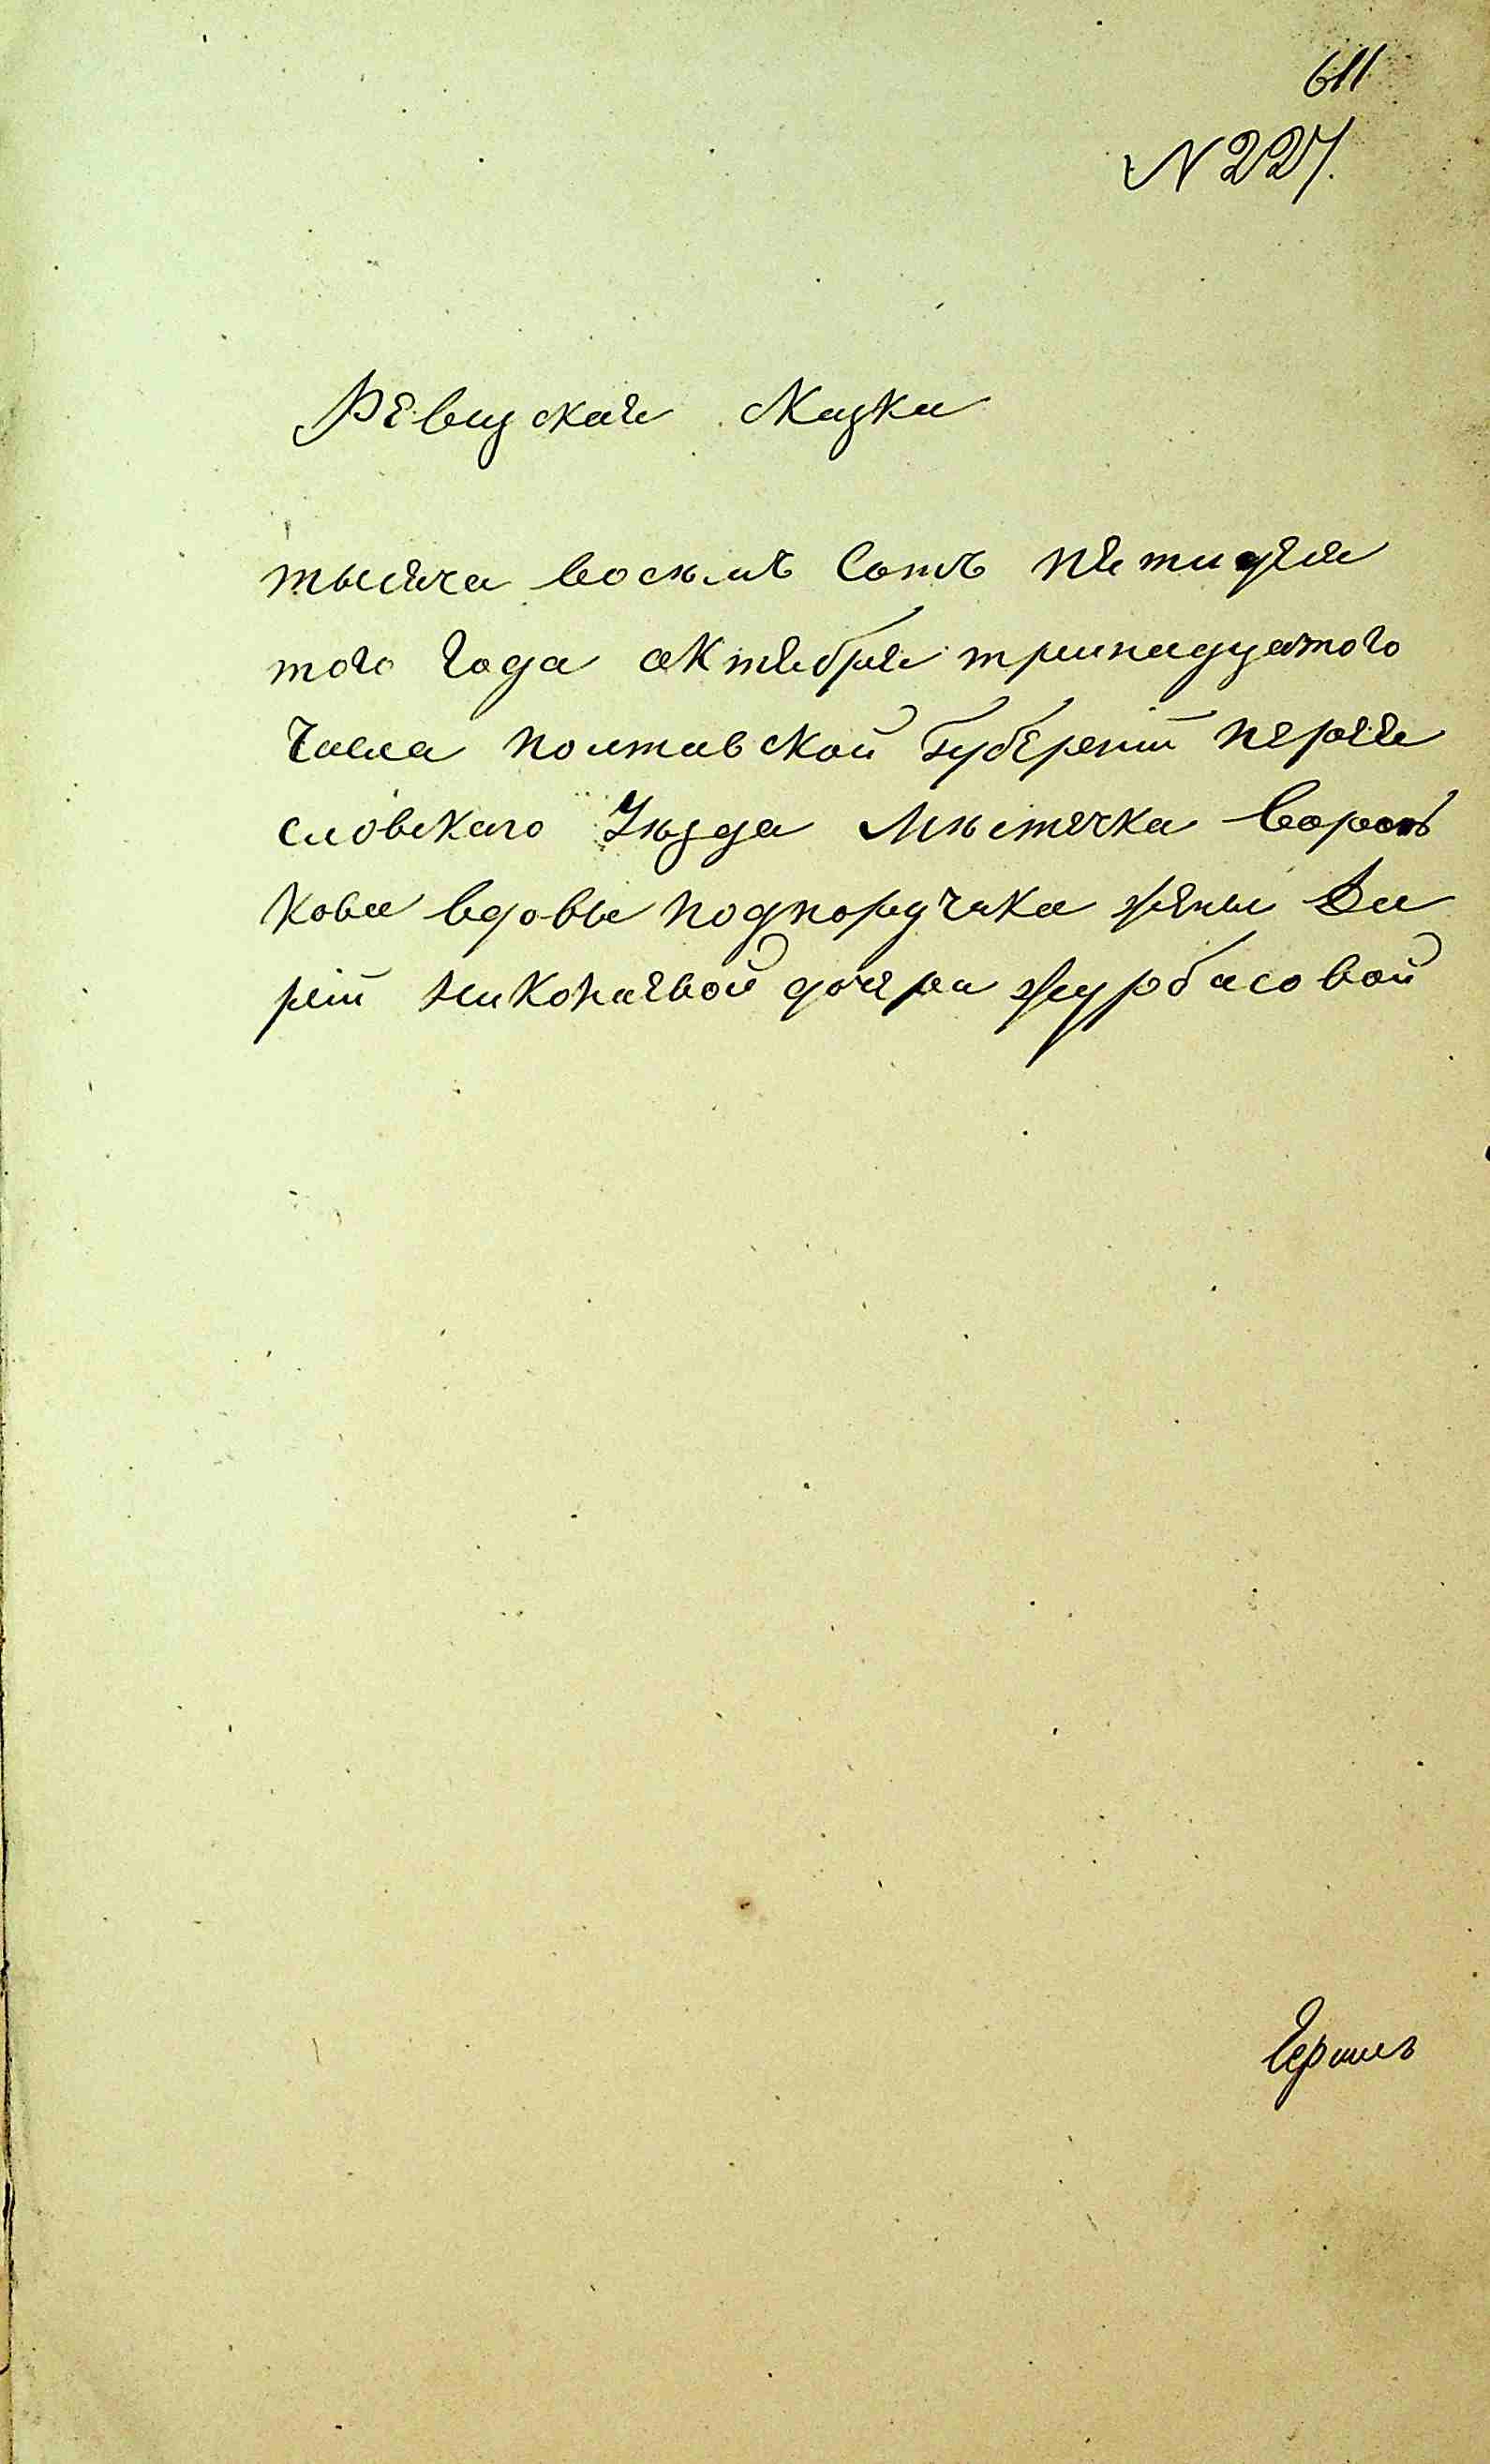 611
N 227.
Ревизская Сказка
тысяча восемъ Сотъ пятидеся
того Года октября тринадцатого
Числа полтавской Губернiи перея
словскаго Уѣзда Мѣстечка Воронь
кова вдовы подпоручика жены Да
рiи николаевой дочери журбасовой